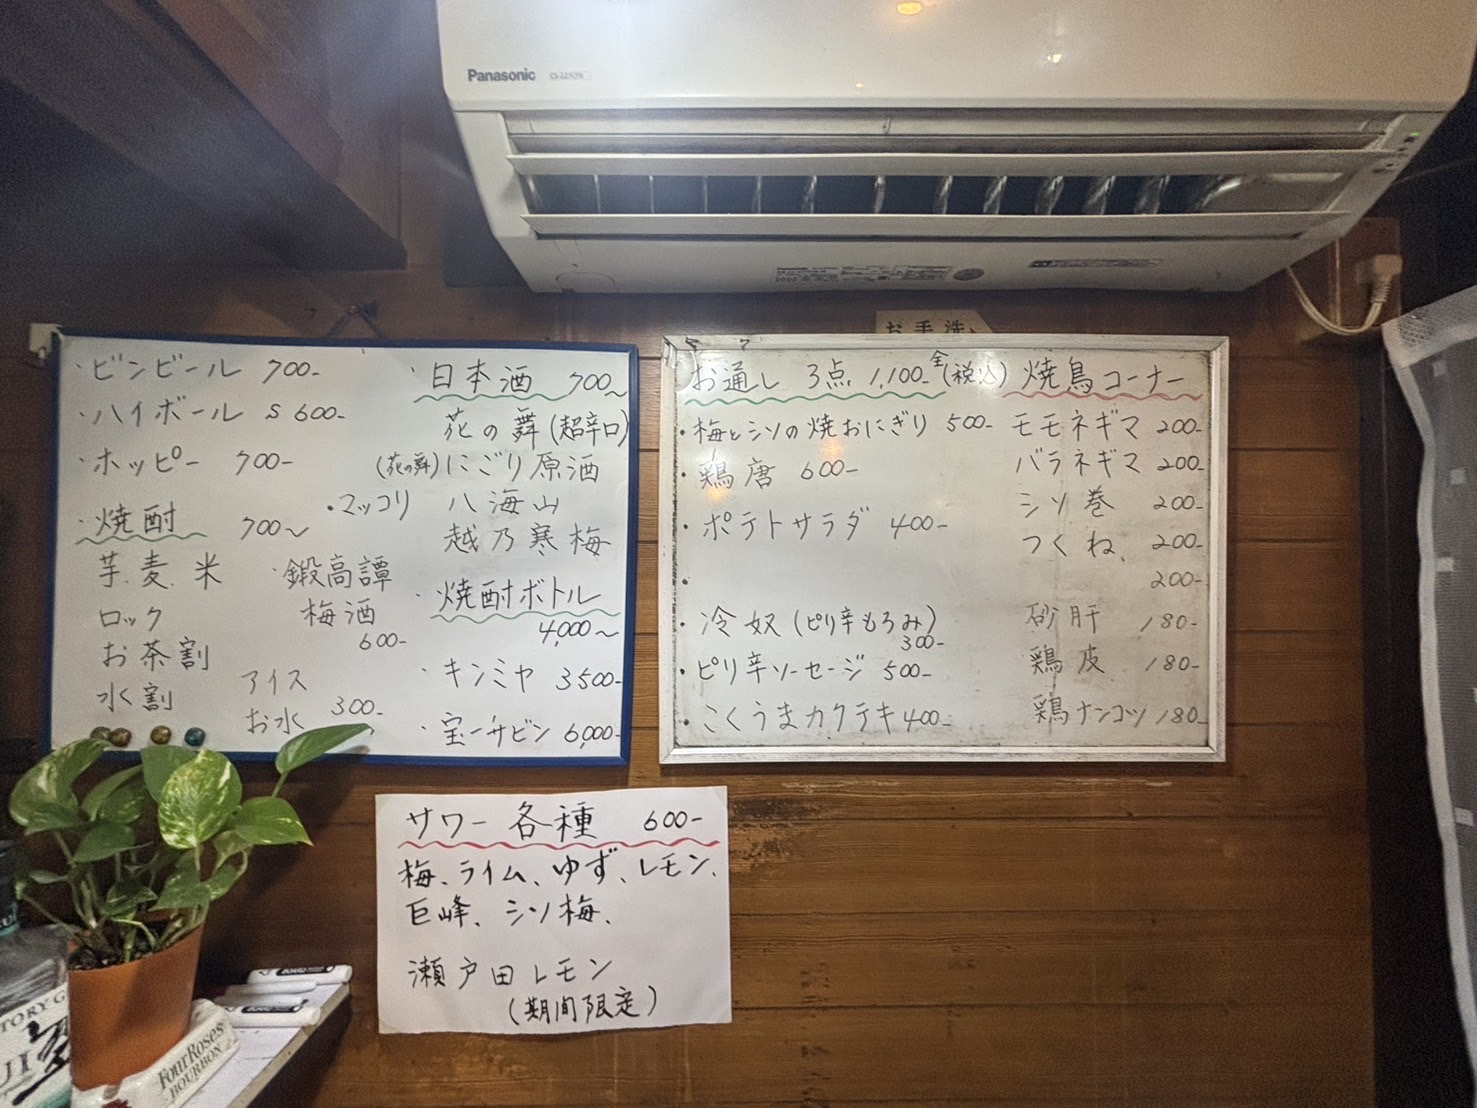 Panasonic
お手洗
・ビンビール 700-
・ハイボール S 600-
・ホッピー 700-
・焼酎 700〜
芋、麦、米
ロック
お茶割
水割
・鍛高譚
梅酒
600-
アイス
お水 300-
・日本酒 700〜
花の舞(超辛口)
(花の舞)にごり原酒
・マッコリ 八海山
越乃寒梅
・焼酎ボトル
4,000〜
・キンミヤ 3500-
・宝一升ビン 6,000-
お通し 3点 1,100- 全(税込)
・梅とシソの焼おにぎり 500-
・鶏唐 600-
・ポテトサラダ 400-
・
・冷奴(ピリ辛もろみ)
300-
・ピリ辛ソーセージ 500-
・こくうまカクテキ 400-
焼鳥コーナー
モモネギマ 200-
バラネギマ 200-
シソ巻 200-
つくね、 200-
200-
砂肝 180-
鶏皮 180-
鶏ナンコツ 180-
サワー各種 600-
梅、ライム、ゆず、レモン、
巨峰、シソ梅、
瀬戸田レモン
(期間限定)
BOARD
BOARD
Four Roses
BOURBON
TORY G